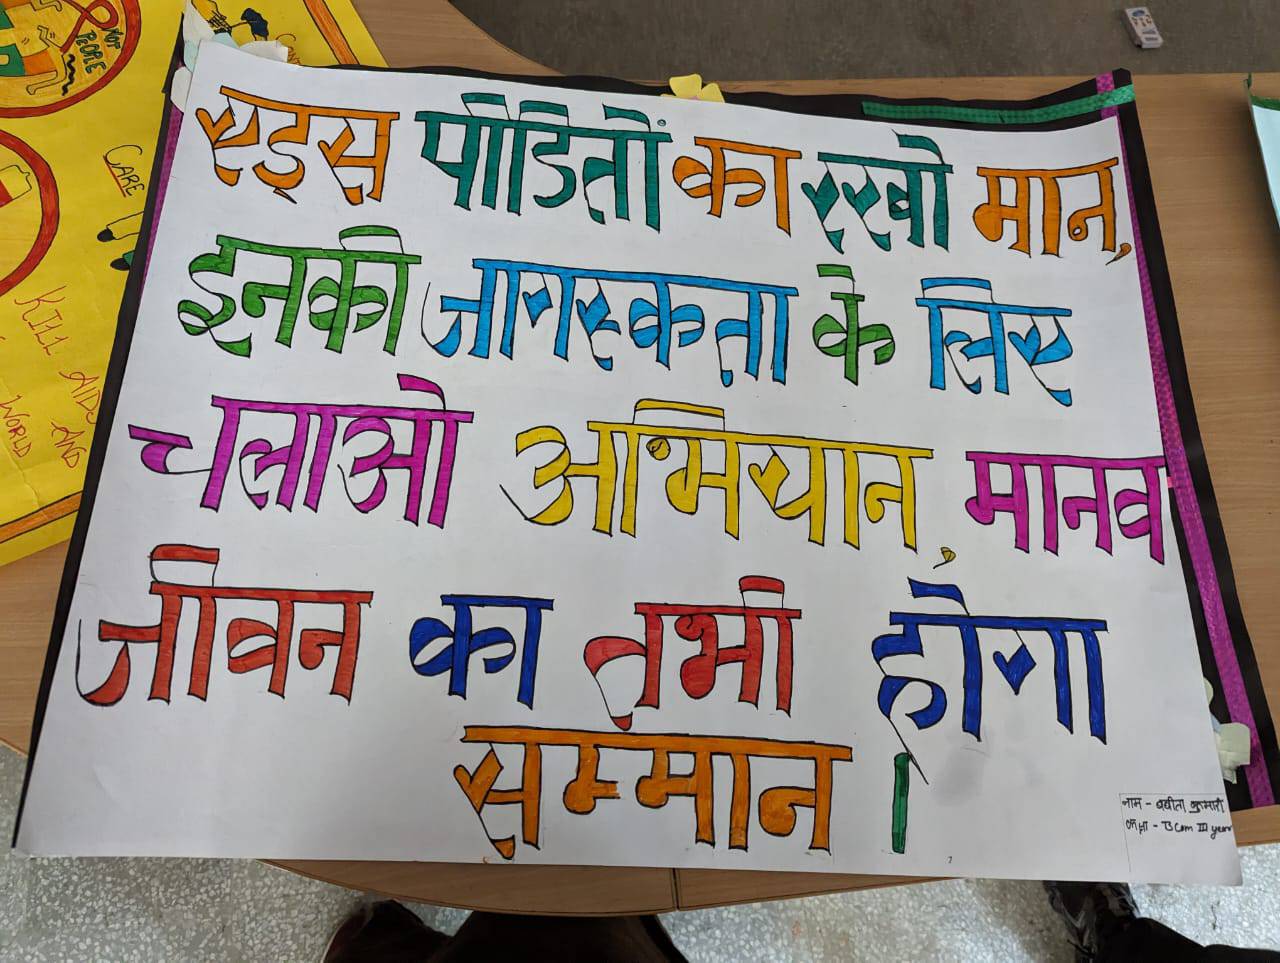 NOT
PEOPLE
CARE
KILL AIDS
AND
WORLD
एड्स पीडितों का रखो मान,
इनकी जागरुकता के लिए
चलाओ अभियान, मानव
जीवन का तभी होगा
सम्मान ।
नाम - बबीता कुमारी
कक्षा - B Com III year